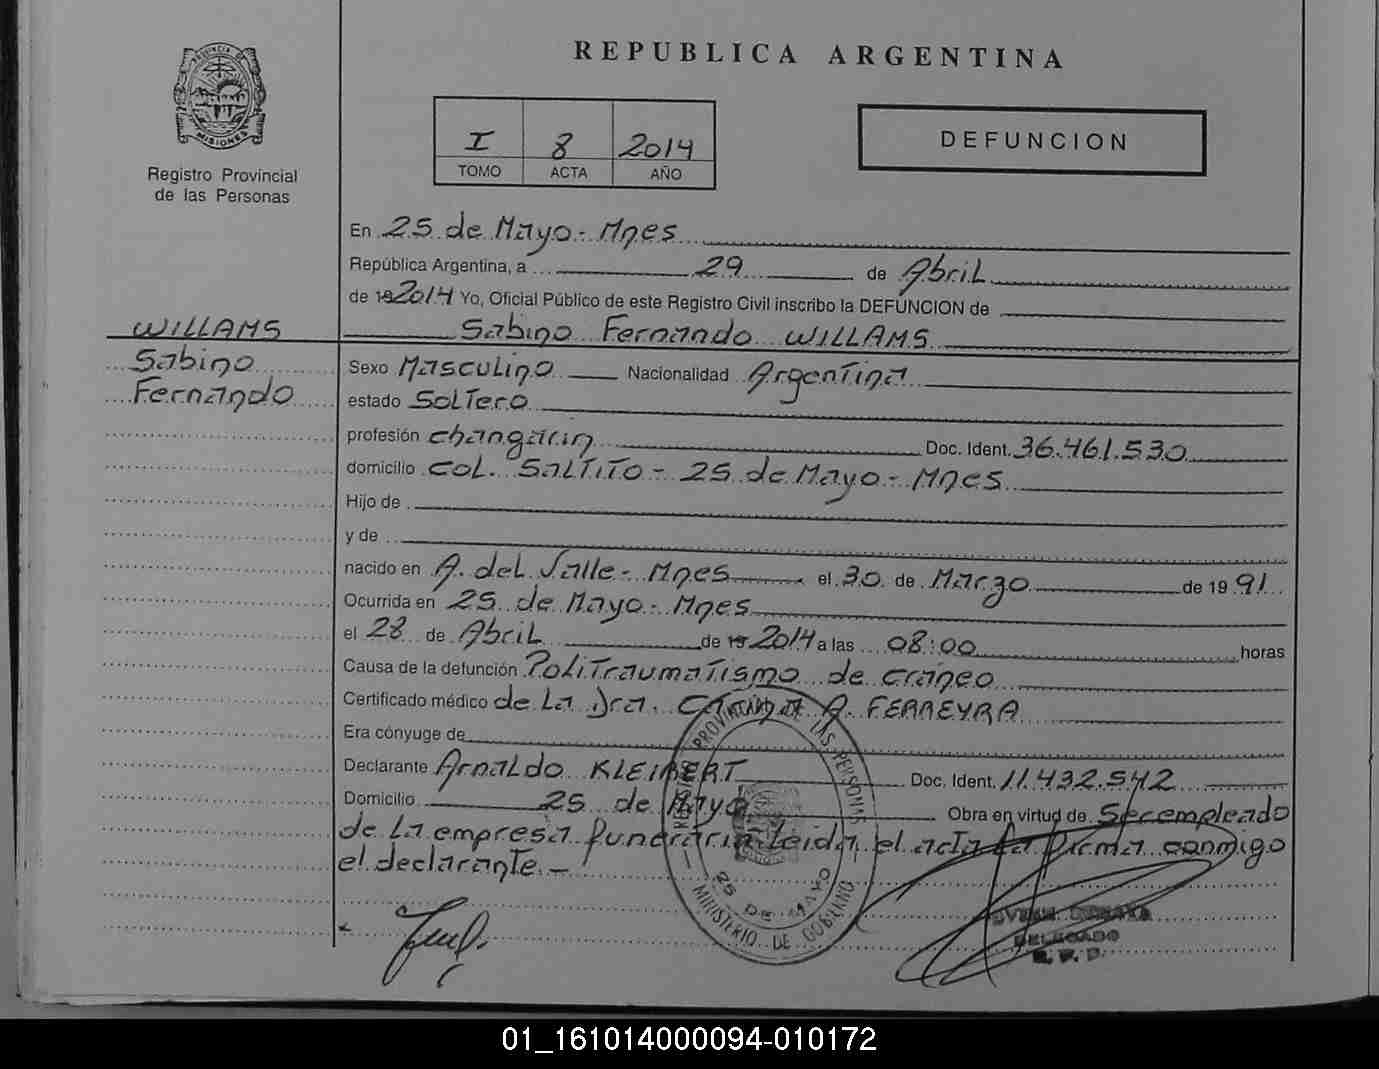 REPUBLICA ARGENTINA
PROVINCIA DE
MISIONES
Registro Provincial
de las Personas
I 8 2014
TOMO ACTA AÑO
DEFUNCION
En 25 de Mayo - Mnes
República Argentina, a 29 de Abril
de 192014 Yo, Oficial Público de este Registro Civil inscribo la DEFUNCION de
Sabino Fernando WILLAMS
WILLAMS
Sabino
Fernando
Sexo Masculino Nacionalidad Argentina
estado Soltero
profesión changarin Doc. Ident. 36.461.530
domicilio COL. SALTITO - 25 de Mayo - Mnes
Hijo de
y de
nacido en A. del Valle - Mnes el 30 de Marzo de 1991
Ocurrida en 25 de Mayo - Mnes
el 28 de Abril de 192014 a las 08:00 horas
Causa de la defunción Politraumatismo de craneo
Certificado médico de La Dra. A. FERREYRA
Era cónyuge de
Declarante Arnaldo KLEIBERT Doc. Ident. 11.432.542
Domicilio 25 de Mayo Obra en virtud de Ser empleado
de La empresa funeraria Leida el acta La firma conmigo
el declarante. -
PROVINCIAL DE LAS PERSONAS
25 DE MAYO
MINISTERIO DE GOBIERNO
DELEGADO
R. P. P.
01_161014000094-010172